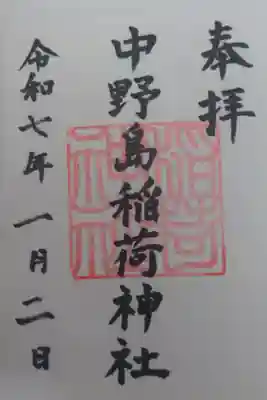 奉拝
中野島稲荷神社
令和七年一月二日